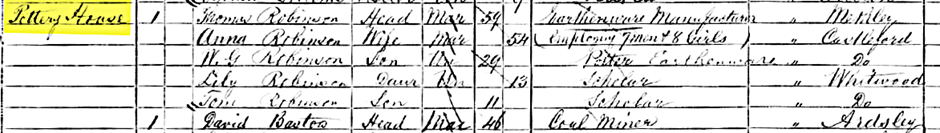 Pottery House 1 Thomas Robinson Head Mar 59 Earthenware Manufacturer " Methley
Anna Robinson Wife Mar 54 (Employing 7 men & 8 Girls) " Castleford
W. G. Robinson Son Un 29 Potter Earthenware " Do
Lily Robinson Daur Un 13 Scholar " Whitwood
Tom Robinson Son 11 Scholar " Do
1 David Bastow Head Mar 46 Coal Miner " Ardsley